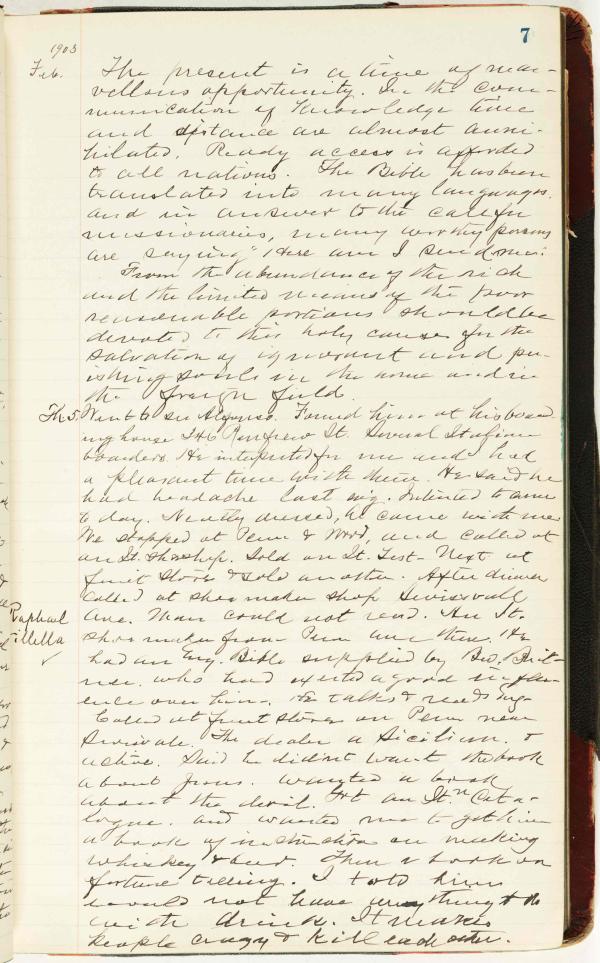 7
1903
Feb. The present is a time of mar-
vellous opportunity. In the com-
munication of knowledge time
and distance are almost anni-
hilated. Ready access is afforded
to all nations. The Bible has been
translated into many languages.
and in answer to the call for
missionaries, many worthy persons
are saying "Here am I send me."
From the abundance of the rich
and the limited means of the poor
reasonable portions should be
devoted to this holy cause for the
salvation of ignorant and per-
ishing souls in the home and in
the foreign field.
Th. 5. Went to see Alfonso. Found him at his board
ing house 246 Renfrew St. Several Italian
boarders. He interpreted for me and had
a pleasant time with them. He said he
had headache last evg. Intended to come
to day. Neatly dressed, he came with me
We stopped at Penn & and called at
an It. shoe shop. Sold an It. Test. Next at
fruit store & sold another. After dinner
Called at shoe maker shop
Ave. Man could not read. An It.
shoe maker from Penn ave there. He
Raphael
had an Eng. Bible supplied by Bro.
who had exerted a good influ-
ence over him. He talks & reads Eng.
Called at fruit store on Penn near
The dealer a Sicilian. &
active. Said he didn't want the book
about Jesus. wanted a book
about the devil. Got an Itn Cata-
logue. and wanted me to get him
a book of instruction on making
whiskey & beer. Then a book on
fortune telling. I told him
would not have anything to do
with drink. It makes
people crazy & kill each other.